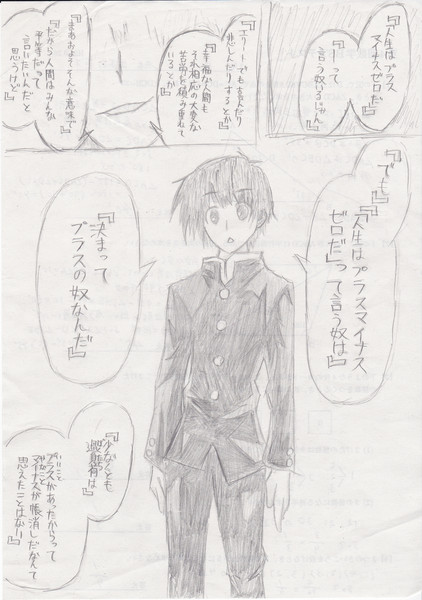 『人生はプラス
マイナスゼロだ』
『――って
言う奴いるじゃん』
『エリートでも喜んだり
悲しんだりするとか
『幸福な人間も
それ相応の大変な
苦労を積み重ねて
いるとか』
『まあおよそそんな意味で
『だから人間はみんな
平等だって
言いたいんだと
思うけど』
『でも』
『『人生はプラスマイナス
ゼロだ』って言う奴は』
『決まって
プラスの奴なんだ』
『少なくとも
いいこと
プラスがあったからって
マイナスが帳消しだなんて
思えたことはない』